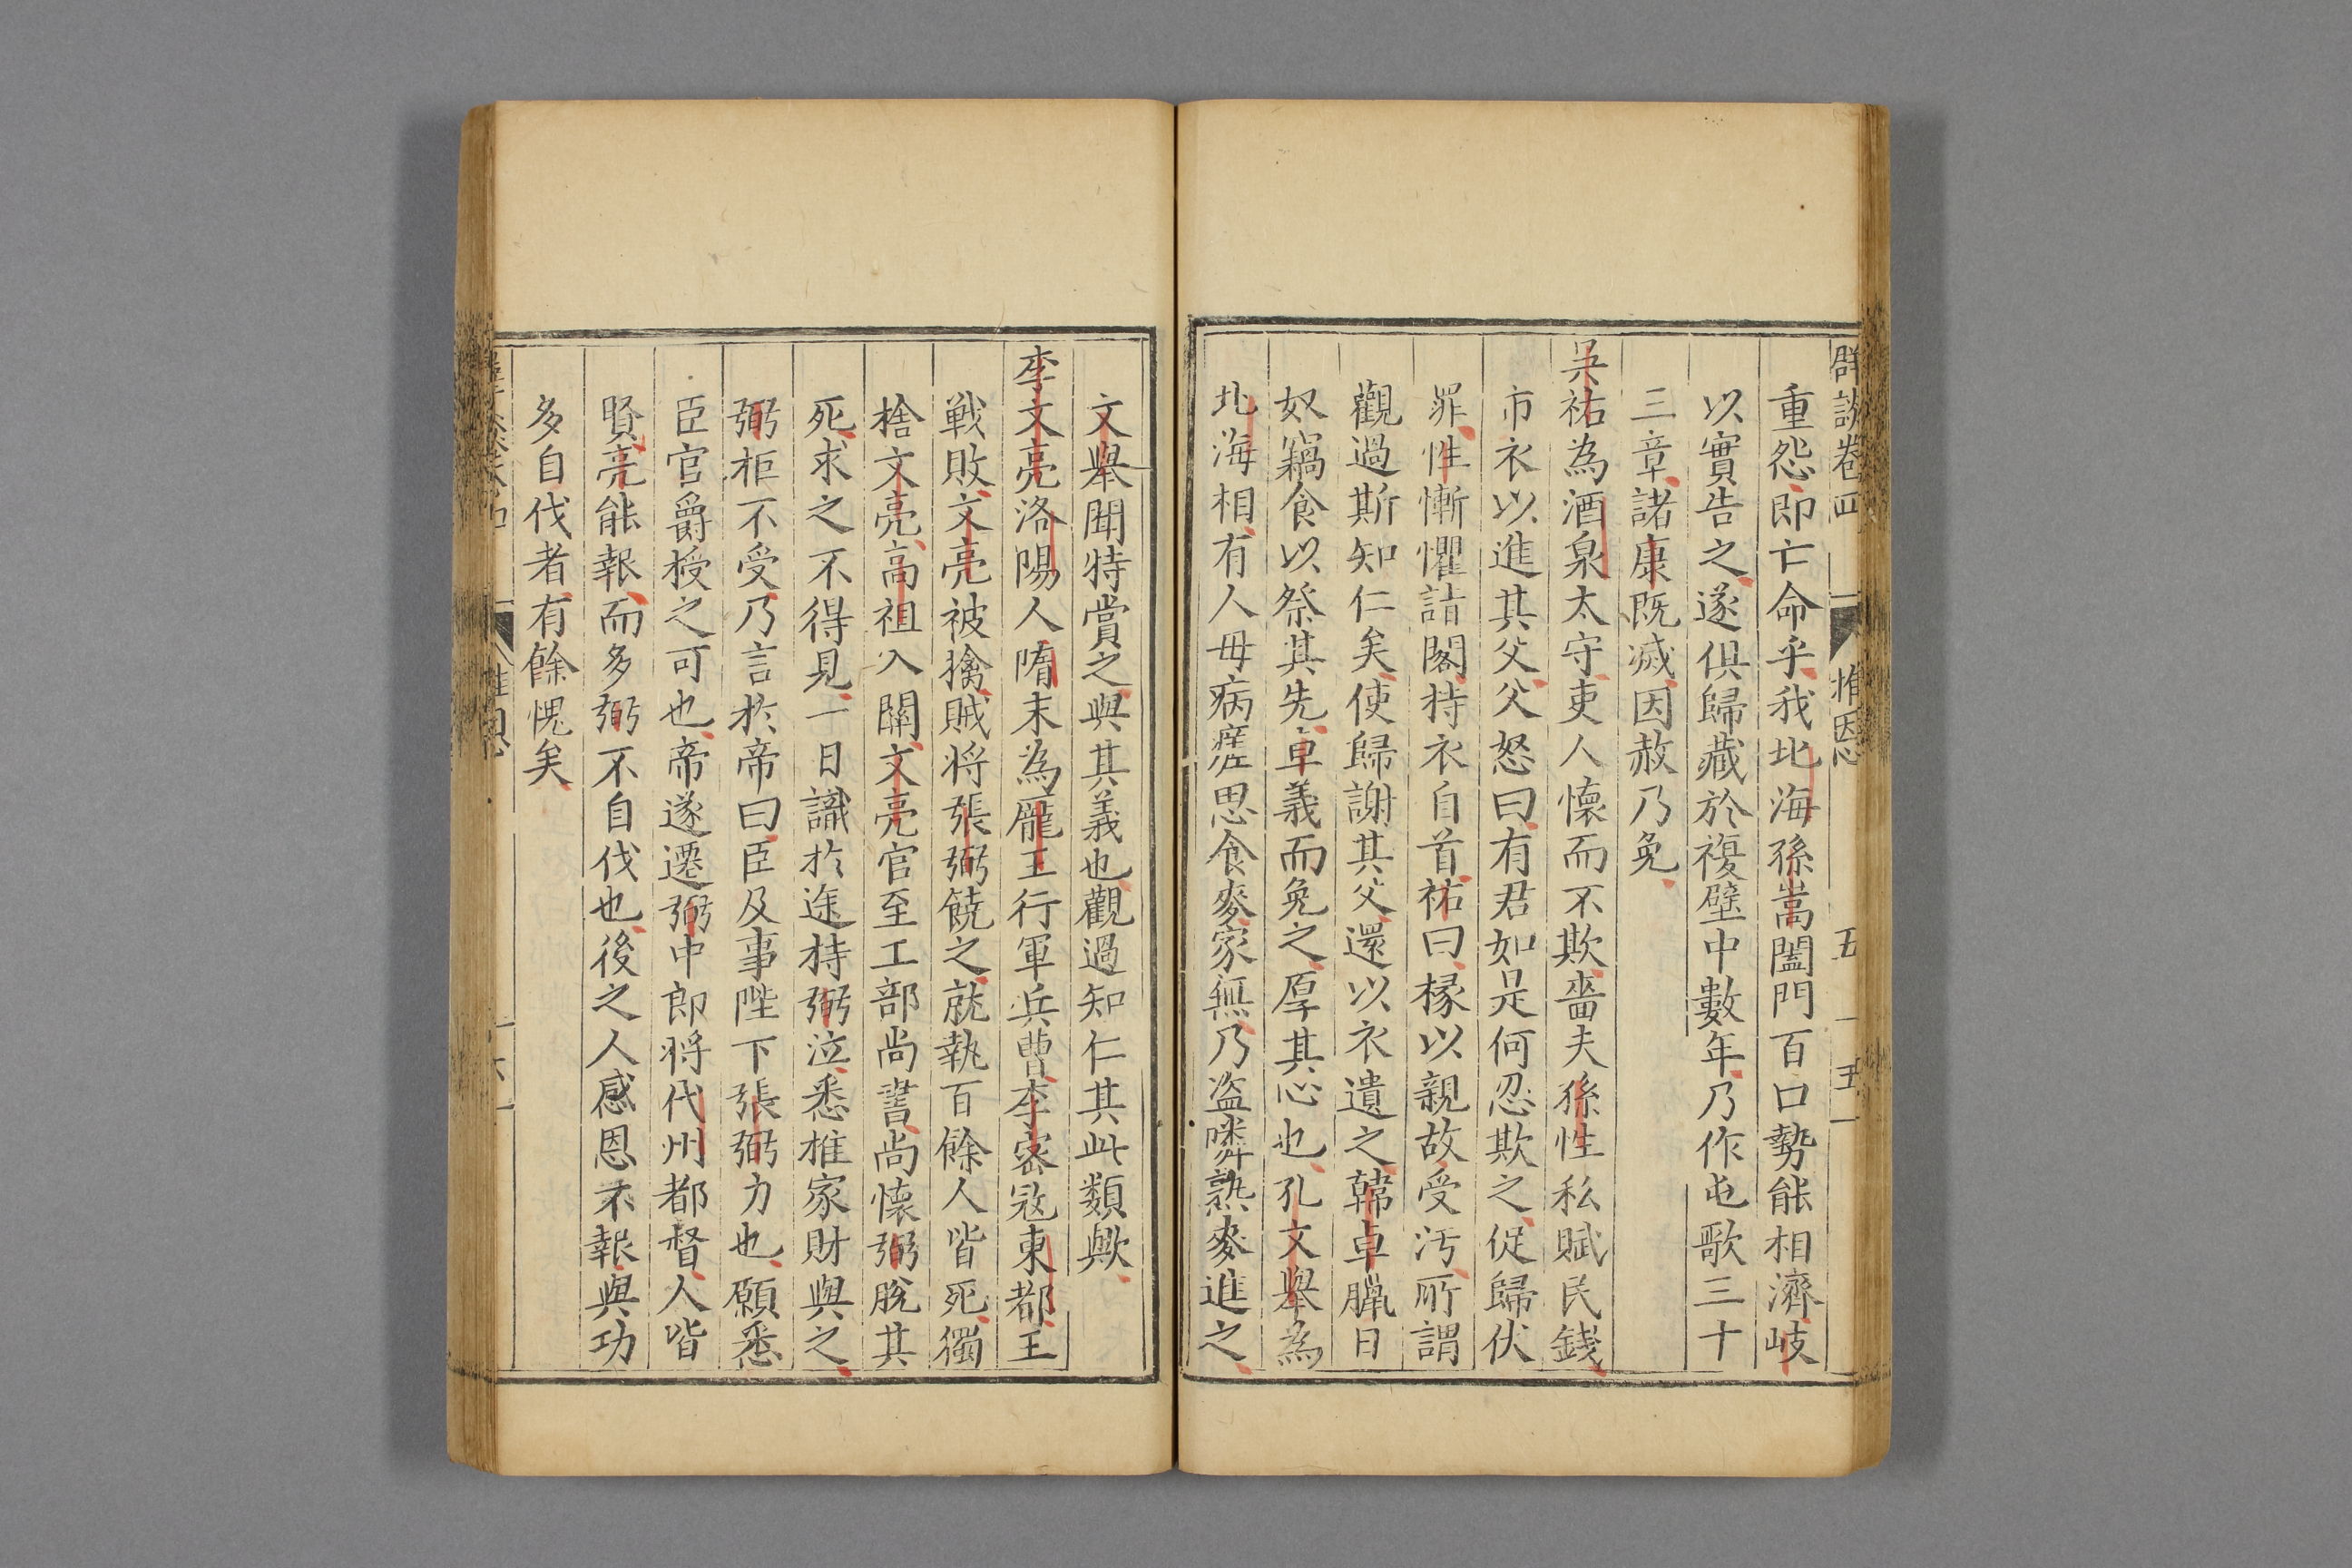 群談卷四 推恩 五 五
重怨即亡命乎我北海孫嵩闔門百口勢能相濟岐
以實告之遂俱歸藏於複壁中數年乃作屯歌三十
三章諸康既滅因赦乃免
吳祐為酒泉太守吏人懷而不欺嗇夫孫性私賦民錢
市衣以進其父父怒曰有君如是何忍欺之促歸伏
罪性慚懼詣閣持衣自首祐曰掾以親故受汚所謂
觀過斯知仁矣使歸謝其父還以衣遺之韓卓臘日
奴竊食以祭其先卓義而免之厚其心也孔文舉為
北海相有人母病瘥思食麥家無乃盜鄰熟麥進之
文舉聞特賞之與其義也觀過知仁其此類歟
李文亮洛陽人隋末為龐王行軍兵曹李密寇東都王
戰敗文亮被擒賊将張弼饒之就執百餘人皆死獨
捨文亮高祖入關文亮官至工部尚書尚懷弼脫其
死求之不得見一日識於途持弼泣悉推家財與之
弼柜不受乃言於帝曰臣及事陛下張弼力也願悉
臣官爵授之可也帝遂遷弼中郎将代州都督人皆
賢亮能報而多弼不自伐也後之人感恩不報與功
多自伐者有餘愧矣